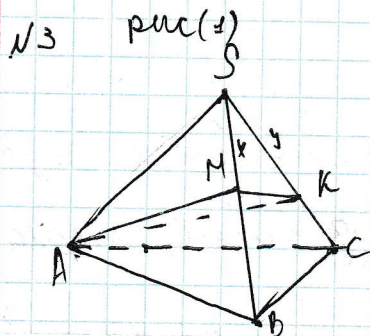 N3 рис(1)
S
x y
M K
A C
B